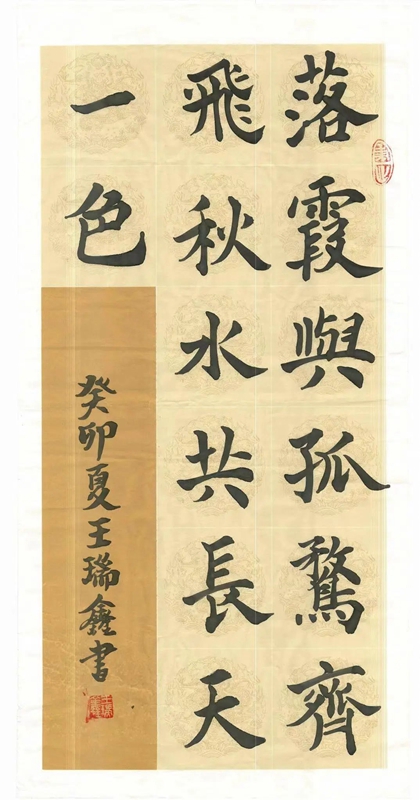 落霞與孤鶩齊
飛秋水共長天
一色
癸卯夏王瑞鑫書